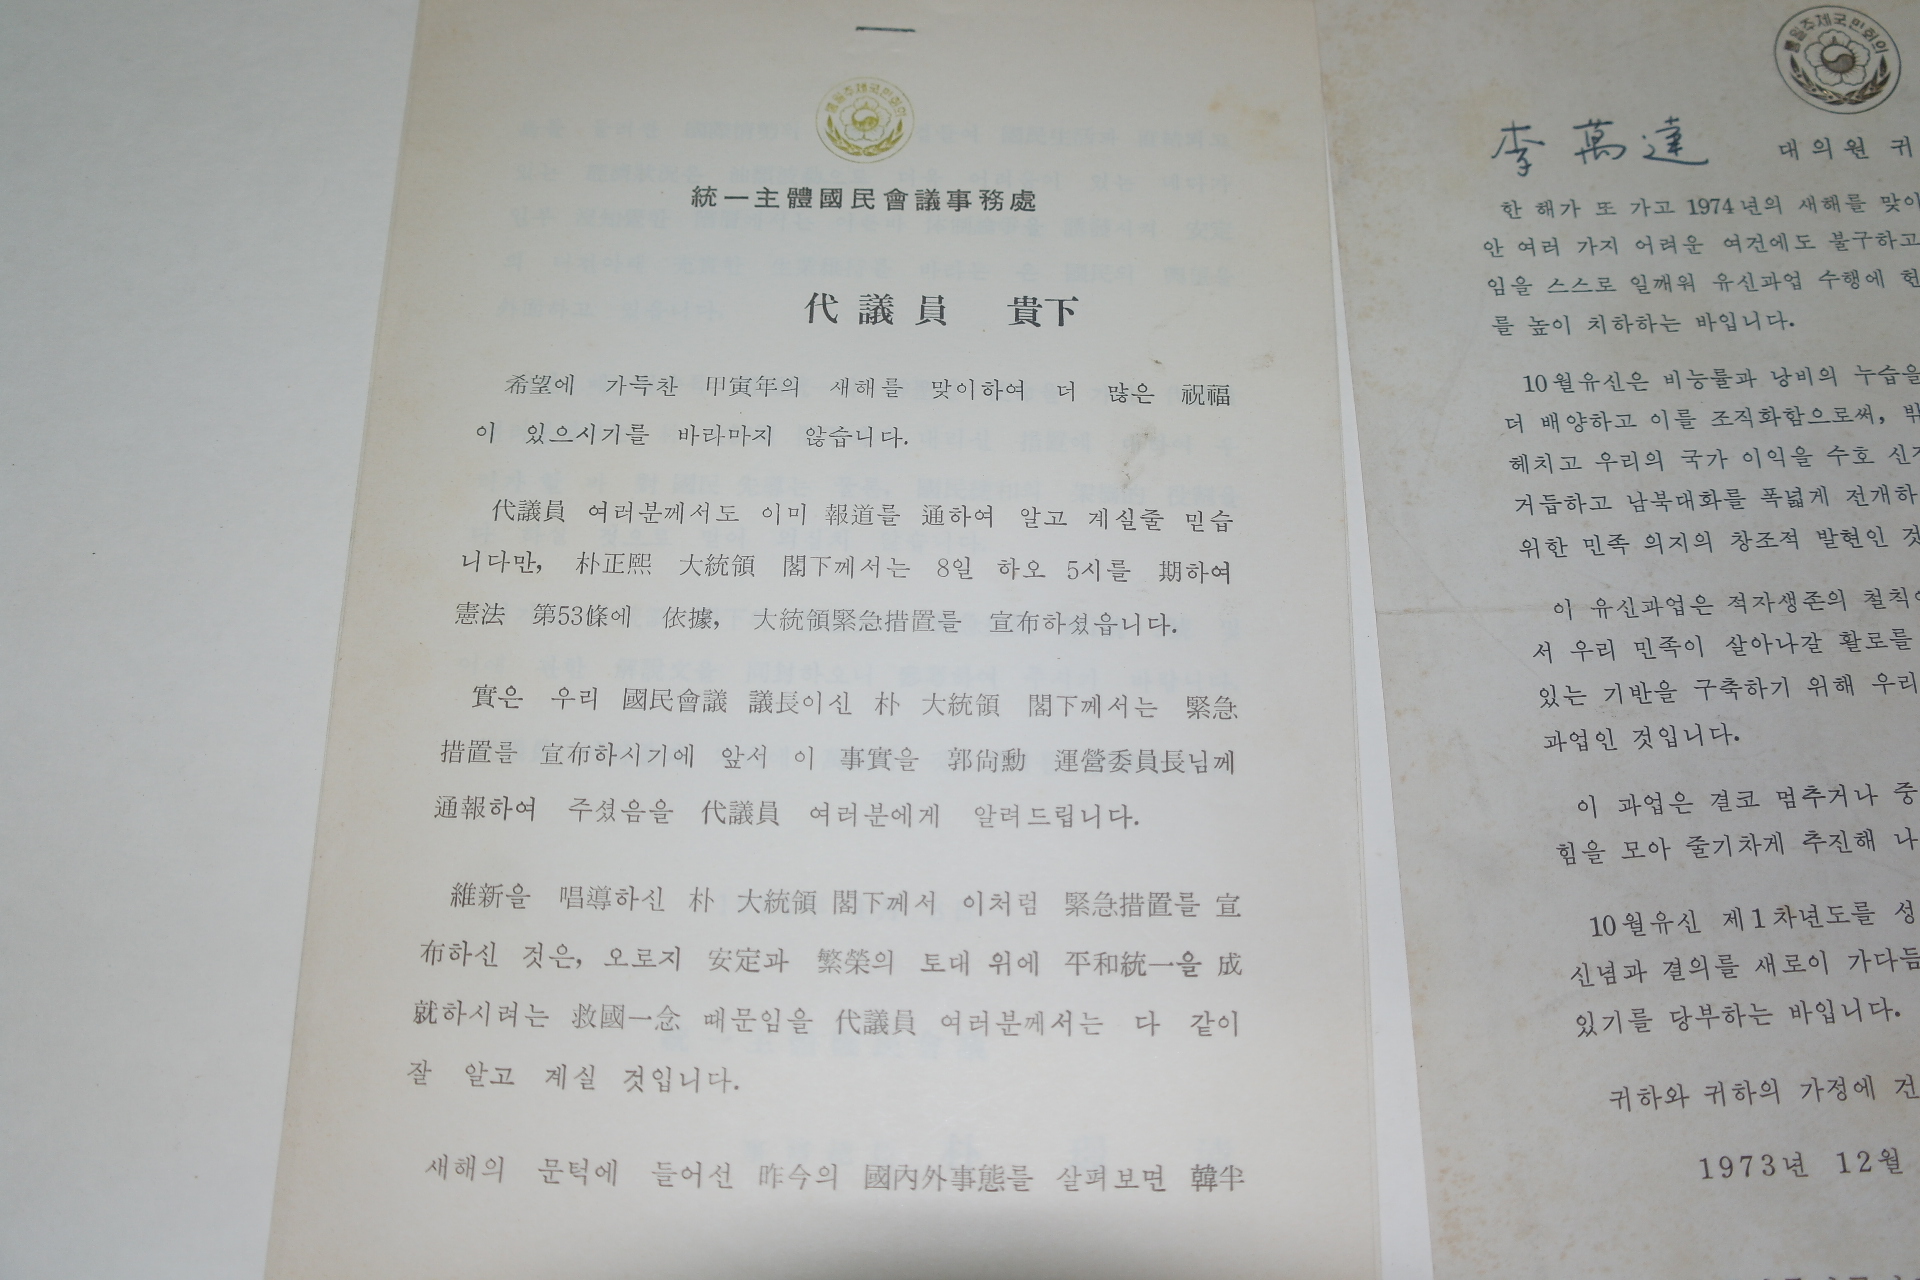 통일주체국민회의
統一主體國民會議事務處
代議員 貴下
希望에 가득찬 甲寅年의 새해를 맞이하여 더 많은 祝福
이 있으시기를 바라마지 않습니다.
代議員 여러분께서도 이미 報道를 通하여 알고 계실줄 믿습
니다만, 朴正熙 大統領 閣下께서는 8일 하오 5시를 期하여
憲法 第53條에 依據, 大統領緊急措置를 宣布하셨읍니다.
實은 우리 國民會議 議長이신 朴 大統領 閣下께서는 緊急
措置를 宣布하시기에 앞서 이 事實을 郭尙勳 運營委員長님께
通報하여 주셨음을 代議員 여러분에게 알려드립니다.
維新을 唱導하신 朴 大統領 閣下께서 이처럼 緊急措置를 宣
布하신 것은, 오로지 安定과 繁榮의 토대 위에 平和統一을 成
就하시려는 救國一念 때문임을 代議員 여러분께서는 다 같이
잘 알고 계실 것입니다.
새해의 문턱에 들어선 昨今의 國內外事態를 살펴보면 韓半
통일주체국민회의
李萬達 대의원 귀
한 해가 또 가고 1974년의 새해를 맞이
안 여러 가지 어려운 여건에도 불구하고
임을 스스로 일깨워 유신과업 수행에 헌
를 높이 치하하는 바입니다.
10월유신은 비능률과 낭비의 누습을
더 배양하고 이를 조직화함으로써,
헤치고 우리의 국가 이익을 수호 신
거듭하고 남북대화를 폭넓게 전개하
위한 민족 의지의 창조적 발현인 것
이 유신과업은 적자생존의 철칙이
서 우리 민족이 살아나갈 활로를
있는 기반을 구축하기 위해 우리
과업인 것입니다.
이 과업은 결코 멈추거나 중
힘을 모아 줄기차게 추진해 나
10월유신 제1차년도를 성
신념과 결의를 새로이 가다듬
있기를 당부하는 바입니다.
귀하와 귀하의 가정에 건
1973년 12월